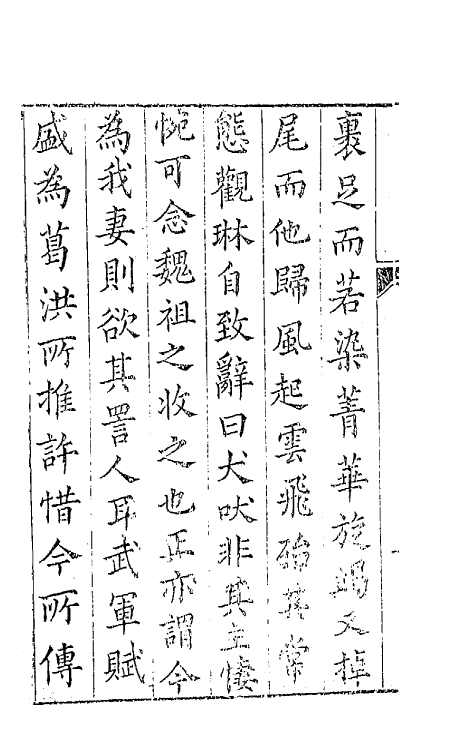 裹足而若染菁華旋踵又掉
尾而他歸風起雲飛殆其常
態觀琳自致辭曰犬吠非其主悽
惋可念魏祖之收之也正亦謂今
為我妻則欲其詈人耳武軍賦
盛為葛洪所推許惜今所傳